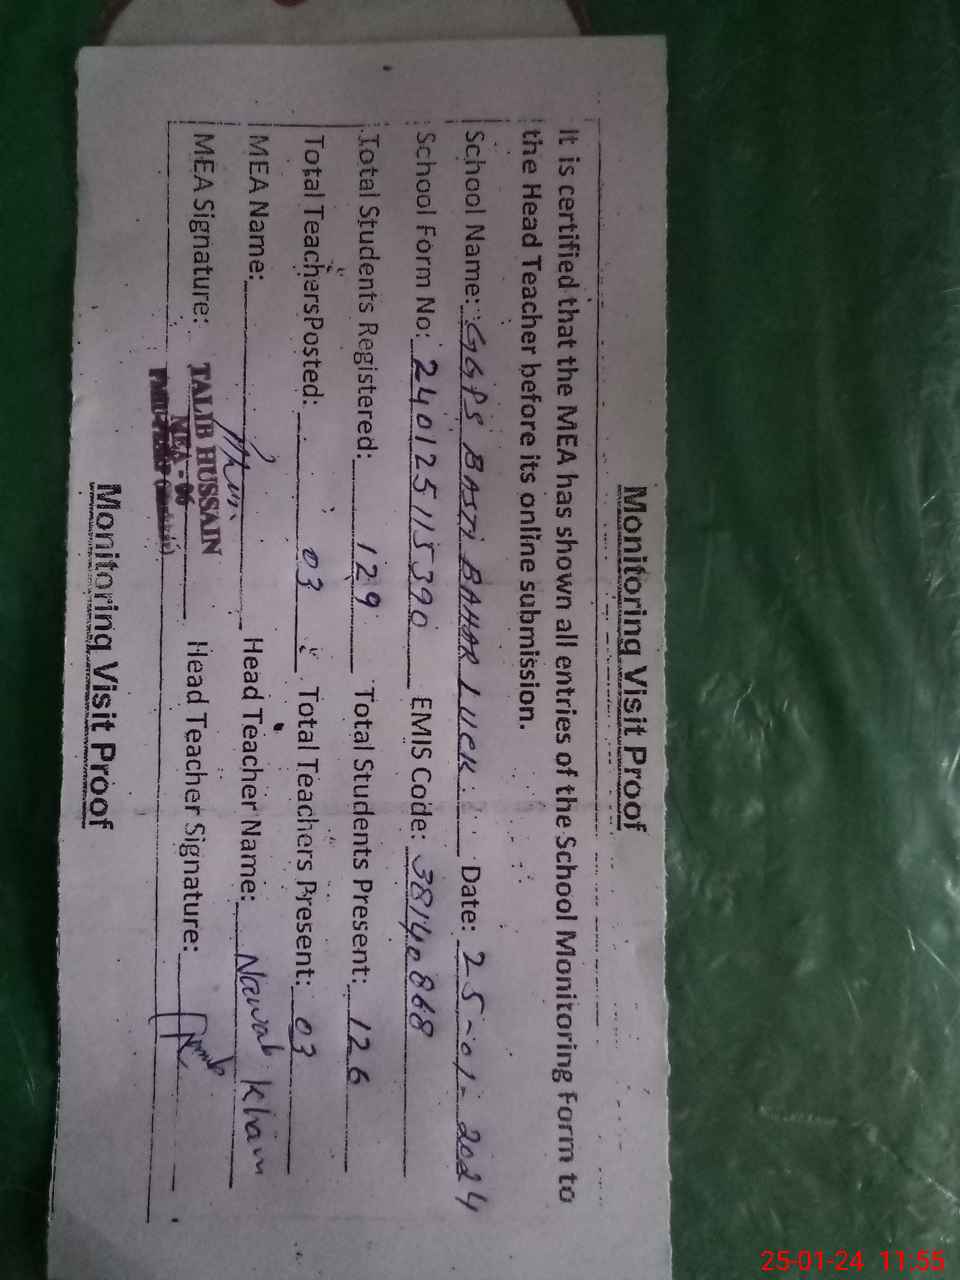 Monitoring Visit Proof
It is certified that the MEA has shown all entries of the School Monitoring Form to
the Head Teacher before its online submission.
School Name: GGPS BASTI BAHAR LUCK Date: 25-01-2024
School Form No: 240125115390 EMIS Code: 38140868
Total Students Registered: 129 Total Students Present: 126
Total TeachersPosted: 03 Total Teachers Present: 03
MEA Name: Head Teacher Name: Nawab Kham
MEA Signature: TALIB HUSSAIN Head Teacher Signature:
MEA - 06
Monitoring Visit Proof
25-01-24 11:55